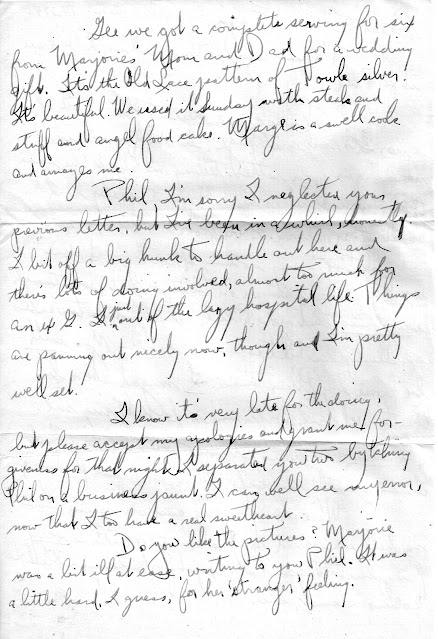 Gee we got a complete serving for six
from Marjories' Mom and Dad for a wedding
gift. Its the Old Lace pattern of Towle silver.
It's beautiful. We used it Sunday with steak and
stuff and angel food cake. Marge is a swell cook
and amazes me.
Phil, I'm sorry I neglected your
previous letter, but I've been in a whirl, honestly.
I bit off a big hunk to handle out here and
theres lots of doing involved, almost too much for
an ex G. I. just out of the lazy hospital life. Things
are panning out nicely now, though and I'm pretty
well set.
I know it's very late for the doing,
but please accept my apologies and grant me for-
giveness for that night I separated you two by taking
Phil on a business jaunt. I can well see my error,
now that I too have a real sweetheart
Do you like the pictures? Marjorie
was a bit ill at ease, writing to you Phil. It was
a little hard, I guess, for her 'stranger' feeling.